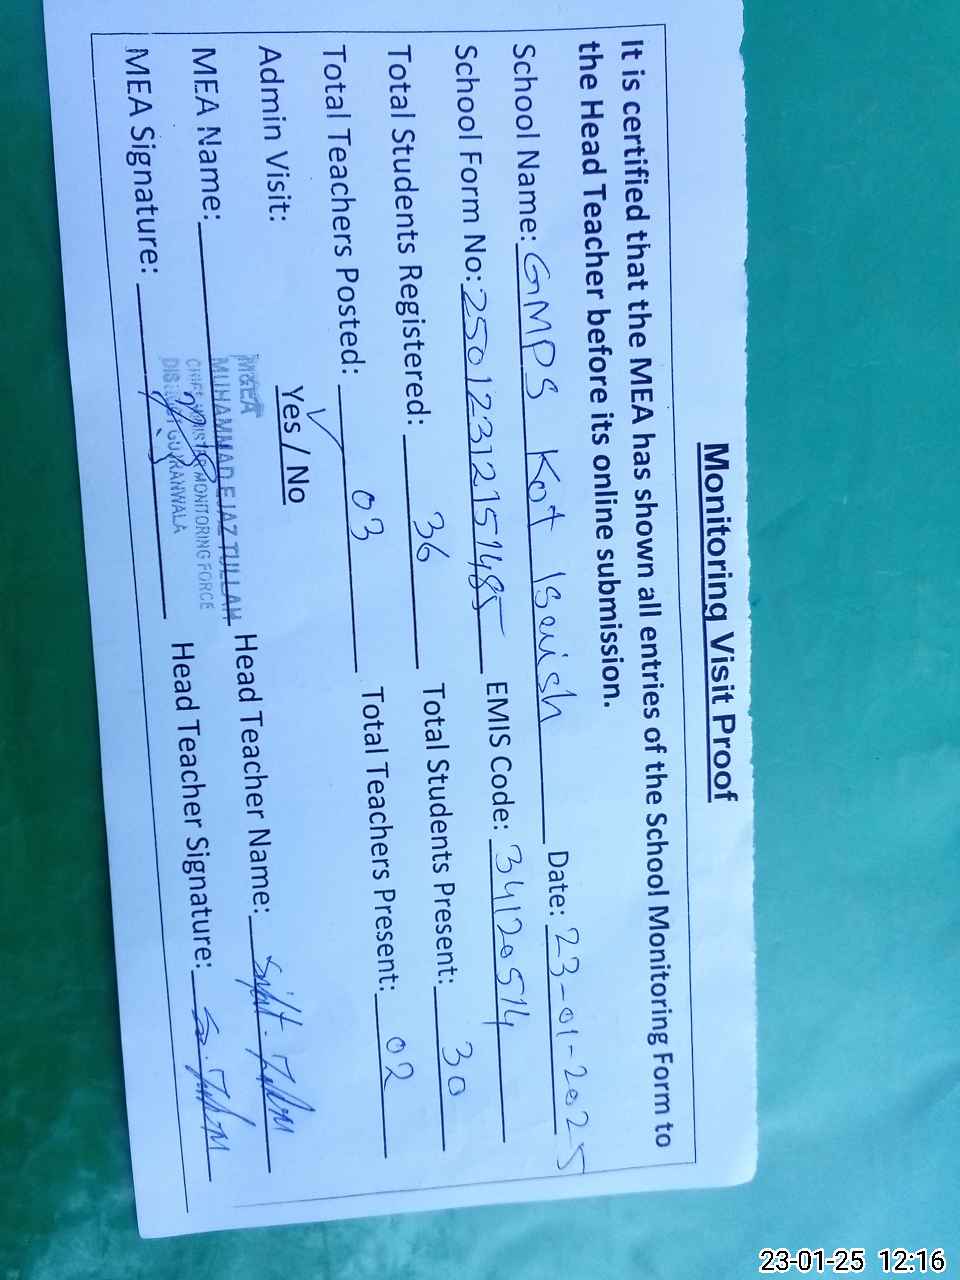 Monitoring Visit Proof
It is certified that the MEA has shown all entries of the School Monitoring Form to
the Head Teacher before its online submission.
School Name: GMPS Kot Date: 23-01-2025
School Form No: 25012312151485 EMIS Code: 34120514
Total Students Registered: 36 Total Students Present: 30
Total Teachers Posted: 03 Total Teachers Present: 02
Admin Visit: Yes / No
M&EA
MEA Name: MUHAMMAD EJAZ TULLAH Head Teacher Name:
CHIEF MINISTER MONITORING FORCE
MEA Signature: Head Teacher Signature:
DISTRICT GUJRANWALA
23-01-25 12:16